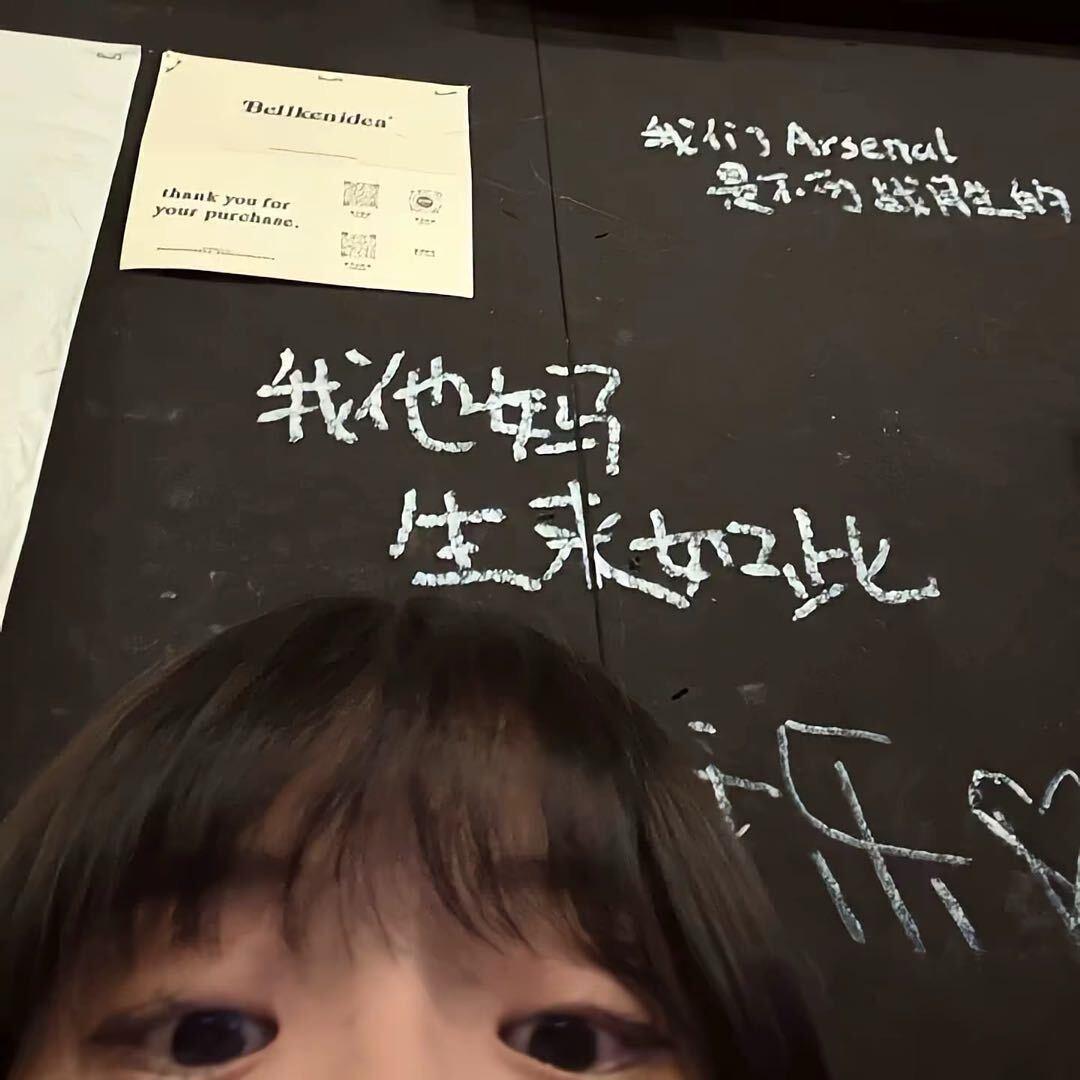 Bellkenidea
thank you for
your purchase.
我们 Arsenal
是不可战胜的
我他妈
生来如此
乐